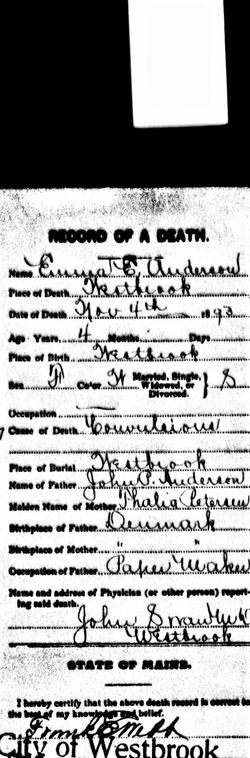 RECORD OF A DEATH.
Name Emma E. Anderson
Place of Death Westbrook
Date of Death Nov 4th 1893
Age - Years, 4 Months Days
Place of Birth Westbrook
Sex F Color W Married, Single, Widowed, or Divorced. } S
Occupation
Cause of Death Convulsions
Place of Burial, Westbrook
Name of Father, John P. Anderson
Maiden Name of Mother, Thalia Petersen
Birthplace of Father, Denmark
Birthplace of Mother, " "
Occupation of Father, Paper Maker
Name and address of Physician (or other person) report-
ing said death.
John Swan M.D.
Westbrook
STATE OF MAINE.
I hereby certify that the above death record is correct to
the best of my knowledge and belief.
City of Westbrook